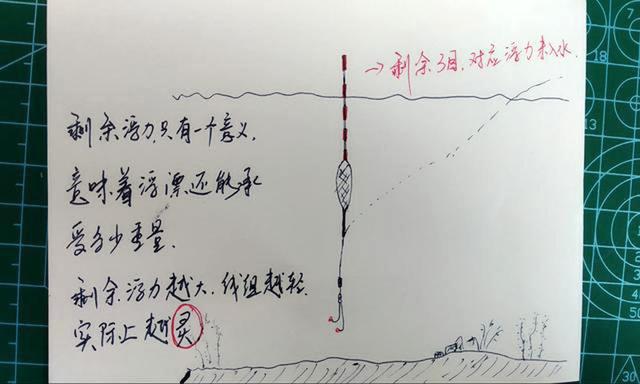 →剩余3目,对应浮力未入水.
剩余浮力只有一个意义,
意味着浮漂还能承
受多少重量.
剩余浮力越大,线组越轻.
实际上越灵
18
13
30